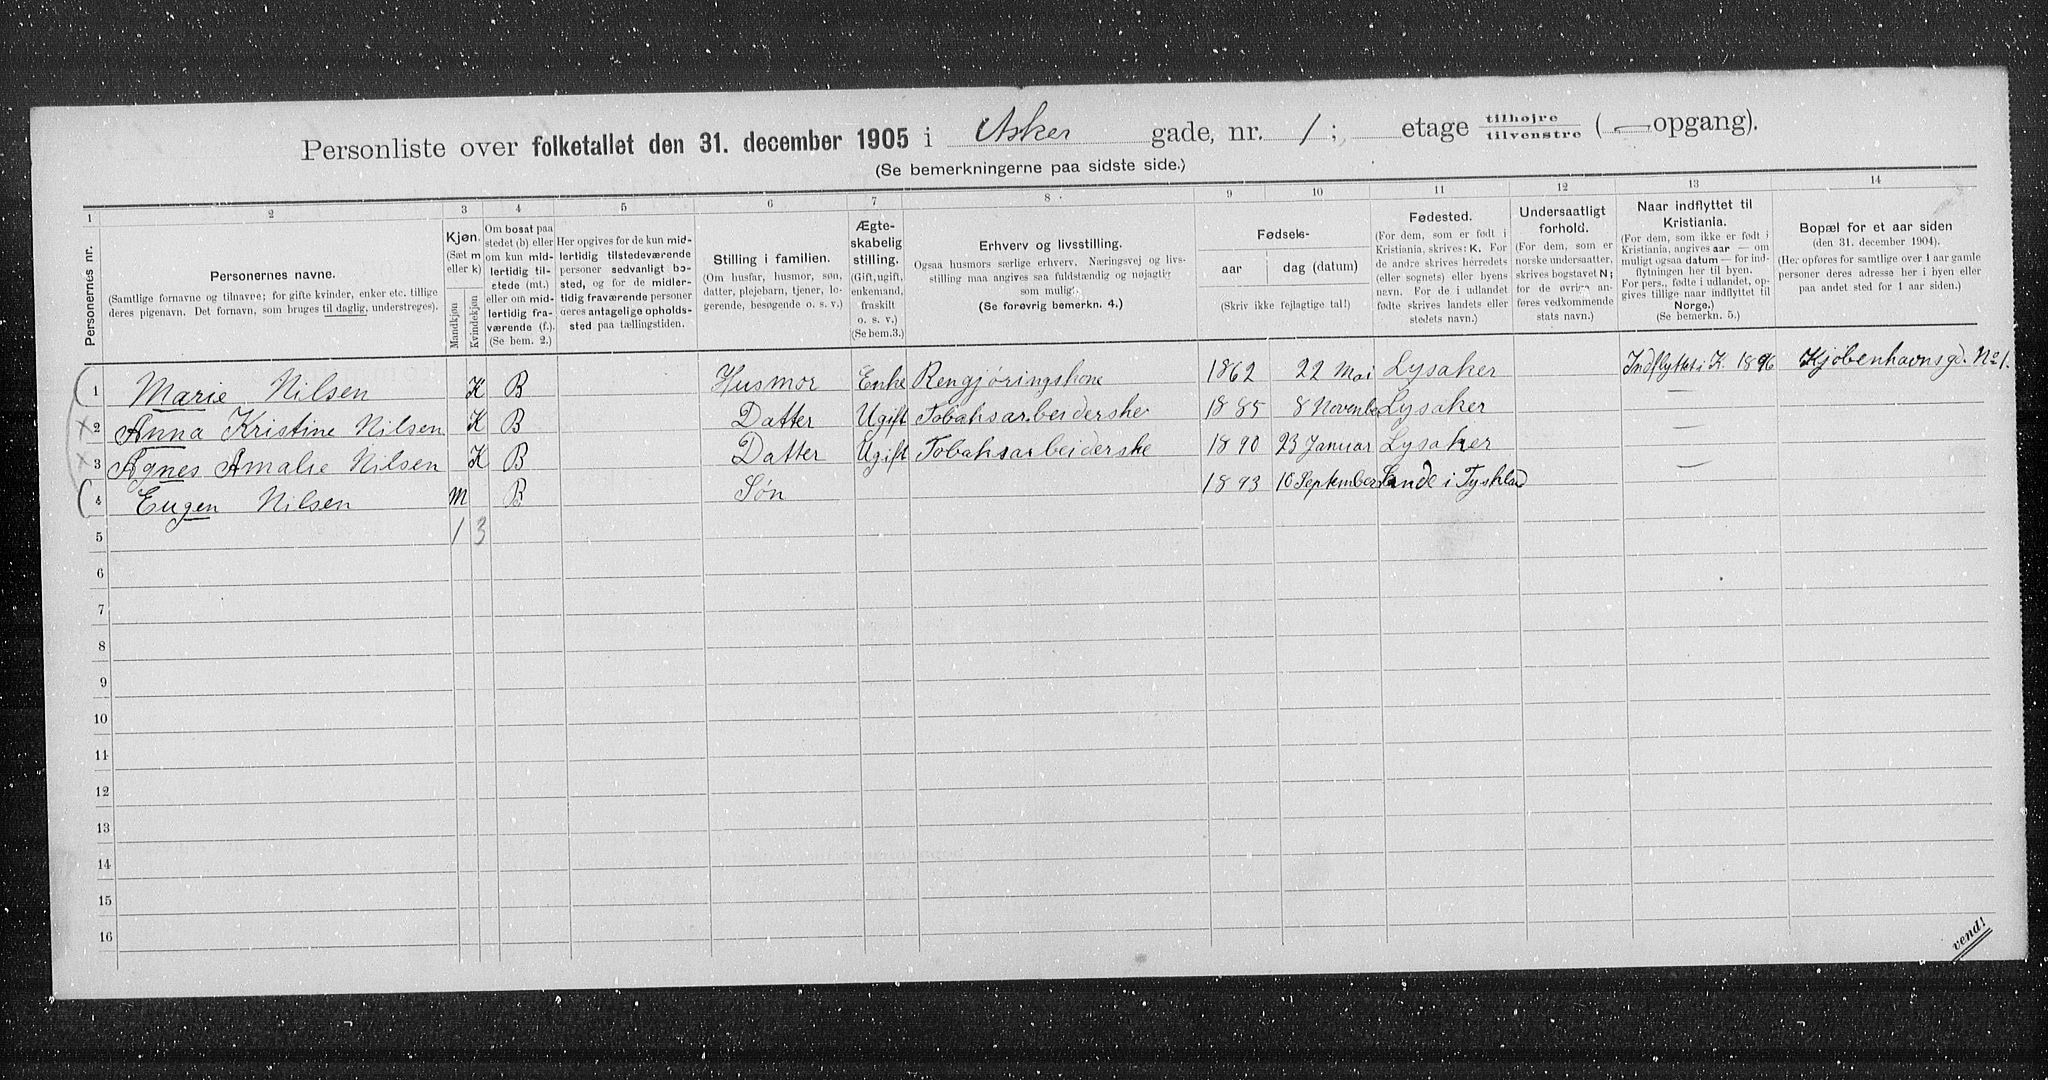 Personliste over folketallet den 31. december 1905 i Asker gade, nr. 1; etage tilhøjre tilvenstre ( — opgang).
(Se bemerkningerne paa sidste side.)
1 2 3 4 5 6 7 8 9 10 11 12 13 14
Personernes nr.
Personernes navne.
(Samtlige fornavne og tilnavne; for gifte kvinder, enker etc. tillige
deres pigenavn. Det fornavn, som bruges til daglig, understreges).
Kjøn.
(Sæt m
eller k)
Mandkjøn
Kvindekjøn
Om bosat paa
stedet (b) eller
om kun mid-
lertidig til-
stede (mt.)
eller om mid-
lertidig fra-
værende (f.).
(Se bem. 2.)
Her opgives for de kun mid-
lertidig tilstedeværende
personer sedvanligt bo-
sted, og for de midler-
tidig fraværende personer
deres antagelige opholds-
sted paa tællingstiden.
Stilling i familien.
(Om husfar, husmor, søn,
datter, plejebarn, tjener, lo-
gerende, besøgende o. s. v.)
Ægte-
skabelig
stilling.
(Gift, ugift,
enkemand,
fraskilt
o. s. v.)
(Se bem.3.)
Erhverv og livsstilling.
Ogsaa husmors særlige erhverv. Næringsvej og livs-
stilling maa angives saa fuldstændig og nøjagtig
som muligt.
(Se forøvrig bemerkn. 4.)
Fødsels-
aar
dag (datum)
(Skriv ikke fejlagtige tal!)
Fødested.
(For dem, som er født i
Kristiania, skrives: K. For
de andre skrives herredets
(eller sognets) eller byens
navn. For de i udlandet
fødte skrives landets eller
stedets navn.)
Undersaatligt
forhold.
(For dem, som er
norske undersaatter,
skrives bogstavet N;
for de øvrige an-
føres vedkommende
stats navn.)
Naar indflyttet til
Kristiania.
(For dem, som ikke er født i
Kristiania, angives aar — om
muligt ogsaa datum — for ind-
flytningen her til byen.
For pers., fødte i udlandet, op-
gives tillige naar indflyttet til
Norge.)
(Se bemerkn. 5.)
Bopæl for et aar siden
(den 31. december 1904).
(Her opføres for samtlige over 1 aar gamle
personer deres adresse her i byen eller
paa andet sted for 1 aar siden.)
1 Marie Nilsen K B Husmor Enke Rengjøringskone 1862 22 Mai Lysaker Indflyttet i K. 1896 Kjøbenhavnsgd. No 1.
2 Anna Kristine Nilsen K B Datter Ugift Tobaksarbeiderske 1885 8 Novenber Lysaker —
3 Agnes Amalie Nilsen K B Datter Ugift Tobaksarbeiderske 1890 23 Januar Lysaker —
4 Eugen Nilsen M B Søn 1893 10 September i Tyskland —
5 1 3
6
7
8
9
10
11
12
13
14
15
16
vend!